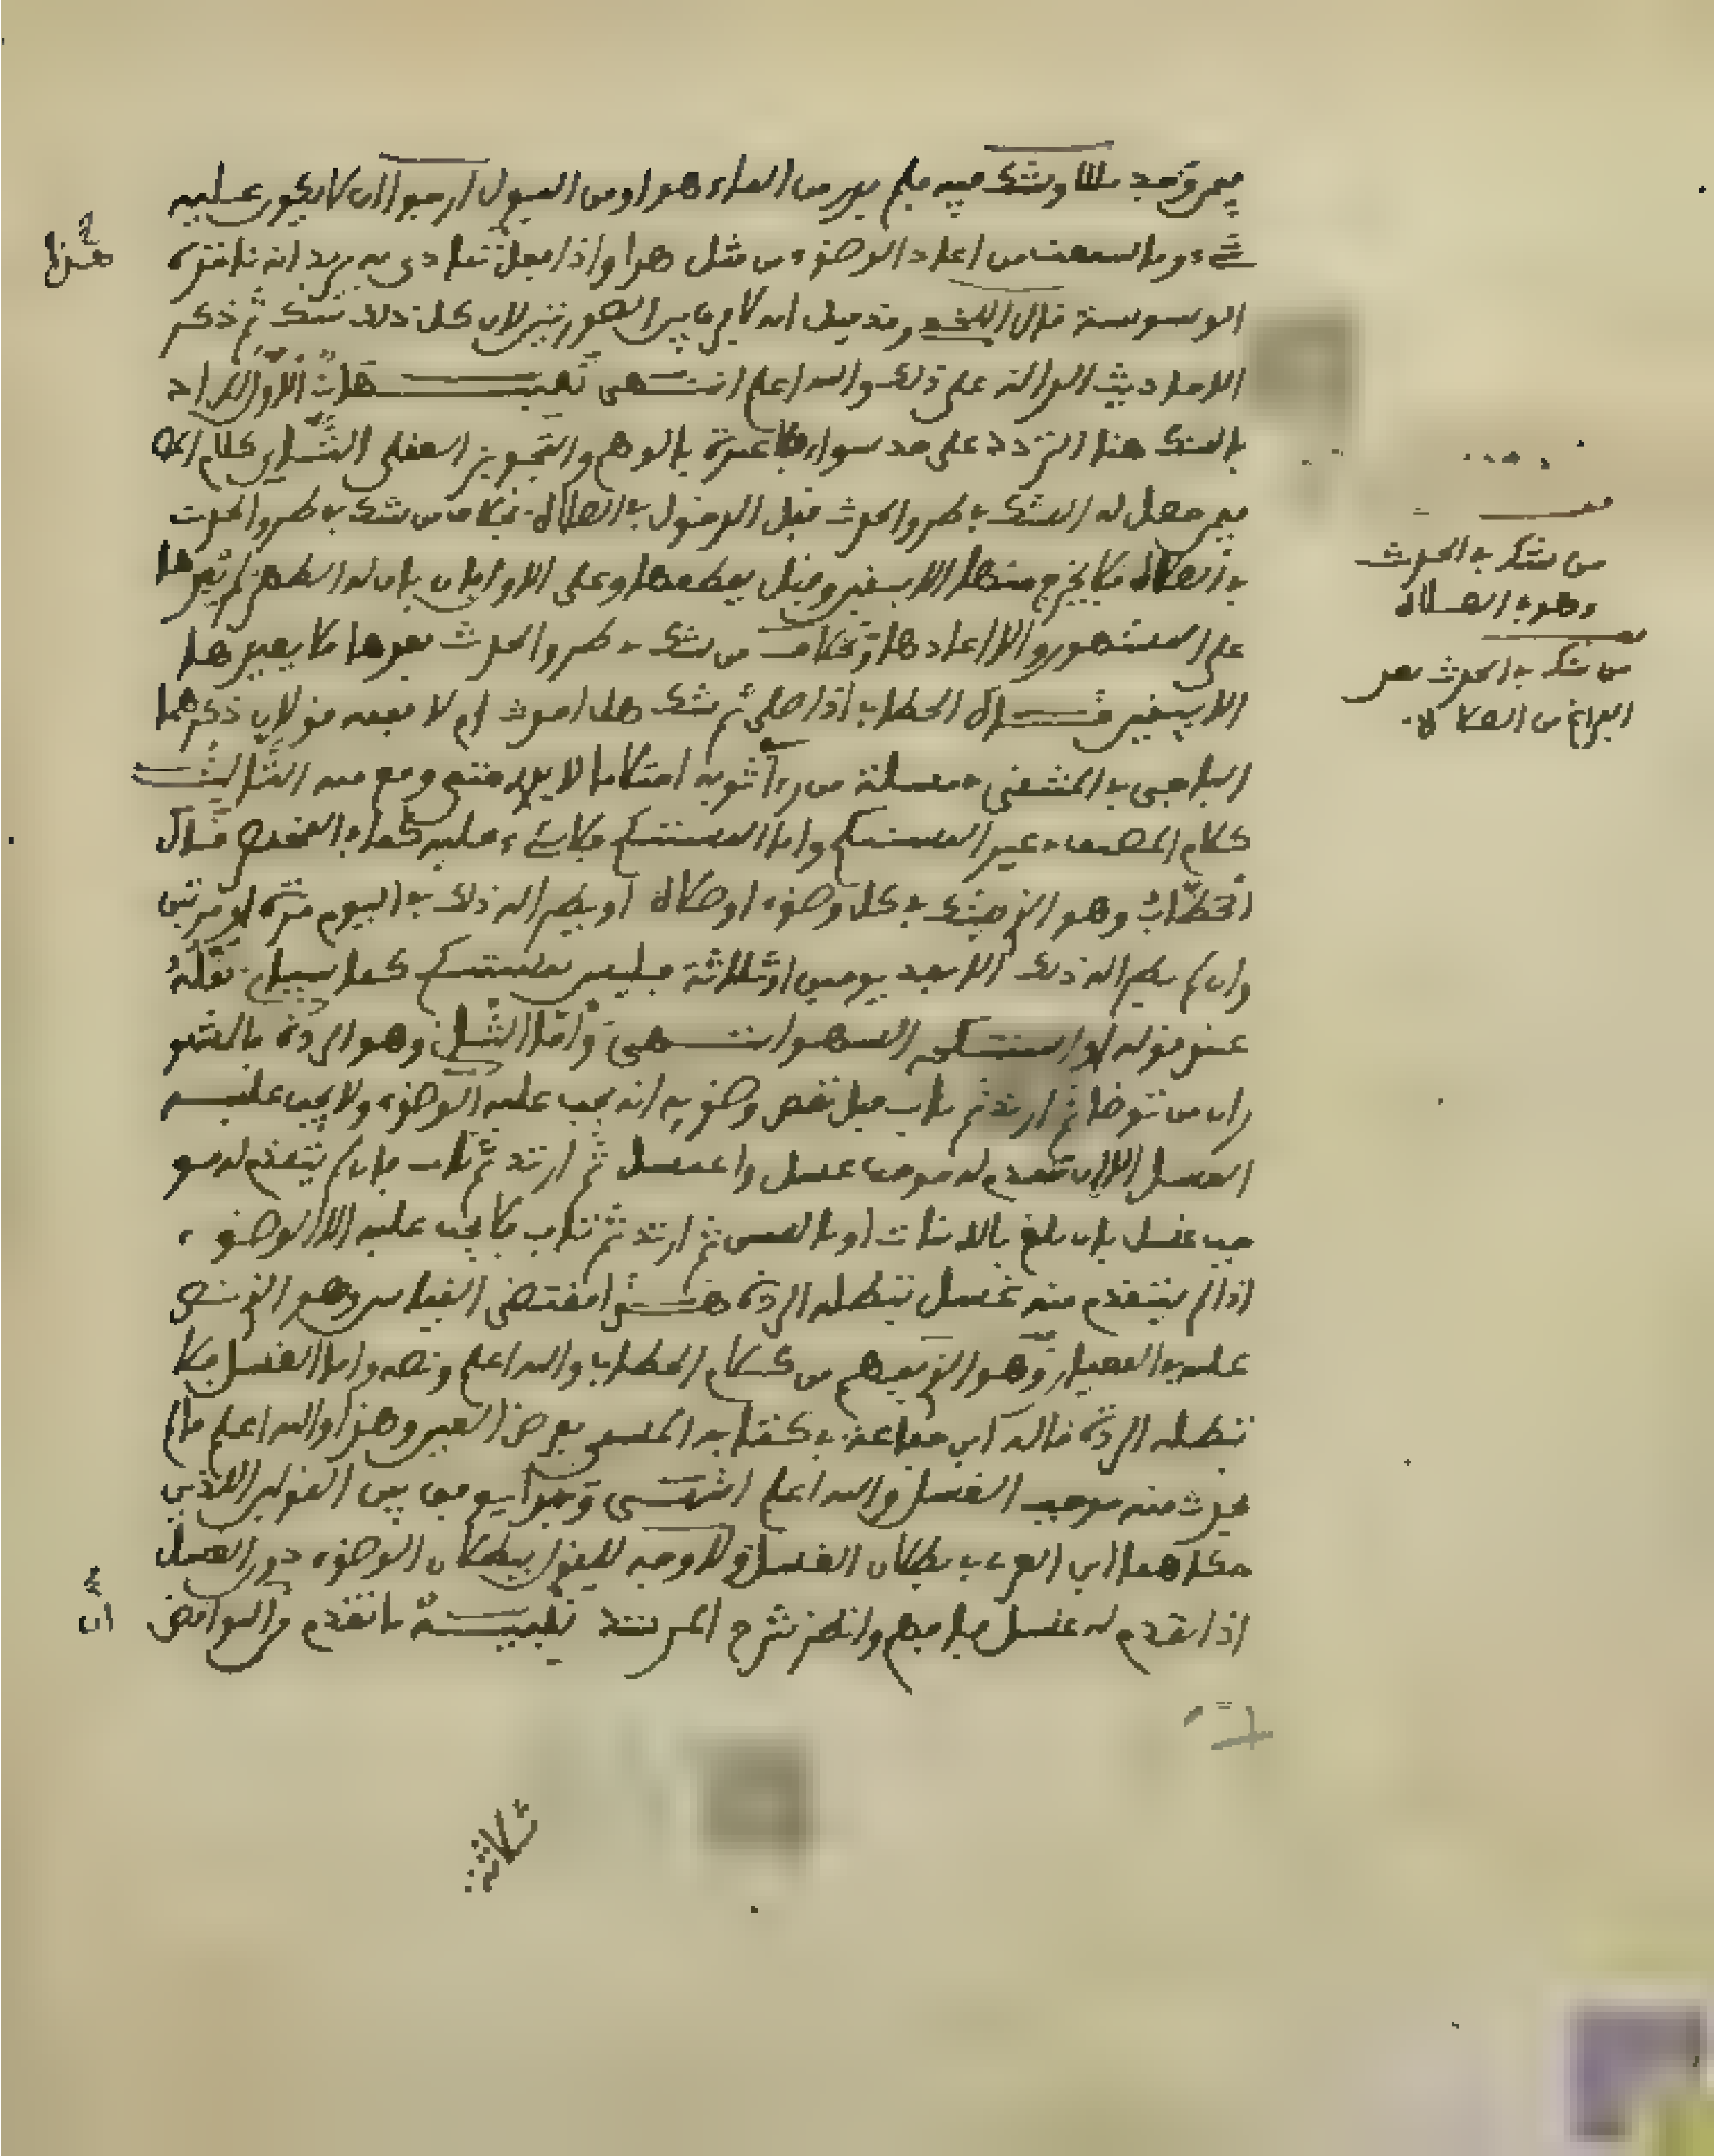 فيمن وجد بللا وشك فيه فلم يدر من الماء هو او من البول ارجوا ان لا يكون عليه
شيء وما سمعت من اعاد الوضوء من مثل هذا واذا فعل تمادى به يريد انه تاخذه
هذا
الوسوسة قال اللخمي وقد قيل انه لا فرق بين الصورتين لان كل ذلك شك ثم ذكر
الاحاديث الدالة على ذلك والله اعلم انتهى تنبيهات الاول المراد
بالشك هنا التردد على حد سواء فلا عبرة بالوهم والتجويز العقلي الثاني كلام
فيمن حصل له الشك في طرو الحدث قبل الدخول في الصلاة بخلاف من شك في طرو الحدث
في الصلاة فلا يخرج منها الا بيقين وقيل يقطعها وعلى الاول فان بان له الطهر لم يعدها
على المشهور والا اعادها وبخلاف من شك في طرو الحدث بعدها فلا يعيدها
الا بيقين قال الحطاب اذا صلى ثم شك هل احدث ام لا ففيه قولان ذكرهما
الباجي في المنتقى في مسئلة من رءا في ثوبه احتلاما لا يدري متى وقع منه الثالث
كلام المصنف في غير المستنكح واما المستنكح فلا شيء عليه كما في المختصر قال
الحطاب وهو الذي يشك في كل وضوء او صلاة او يطرا له ذلك في اليوم مرة او مرتين
وان لم يطرا له ذلك الا بعد يومين او ثلاثة فليس بمستنكح كما سيياتي نقله
عند قوله او استنكحه السهو انتهى واما الثاني وهو الردة فالمشهو
ران من توضا ثم ارتد ثم تاب قبل نقض وضوءه انه يجب عليه الوضوء ولا يجب عليه
الغسل الا ان تقدم له موجب غسل واغتسل ثم ارتد ثم تاب فان لم يتقدم له مو
جب غسل بان بلغ بالانبات او بالسن ثم ارتد ثم تاب فلا يجب عليه الا الوضوء
اذا لم يتقدم منه غسل تبطله الردة هذا مقتضى القياس وهو الذي نص
عليه في المعيار وهو الذي يفهم من كلام الحطاب والله اعلم ونصه واما الغسل فلا
تبطله الردة قاله ابن جماعة في كتابه المسمى بفرض العين وهذا والله اعلم ما لم
يحدث منه موجب الغسل والله اعلم انتهى وبهذا يوفق بين القولين اللذين
حكاهما ابن العربي في بطلان الغسل ولا وجه للقول ببطلان الوضوء دون الغسل
اذا تقدم له غسل فافهم وانظر شرح المرشد تنبيه ما تقدم من النواقض
ان
من شك في الحدث
وهو في الصلاة
من شك في الحدث بعد
الفراغ من الصلاة
ثلاثة